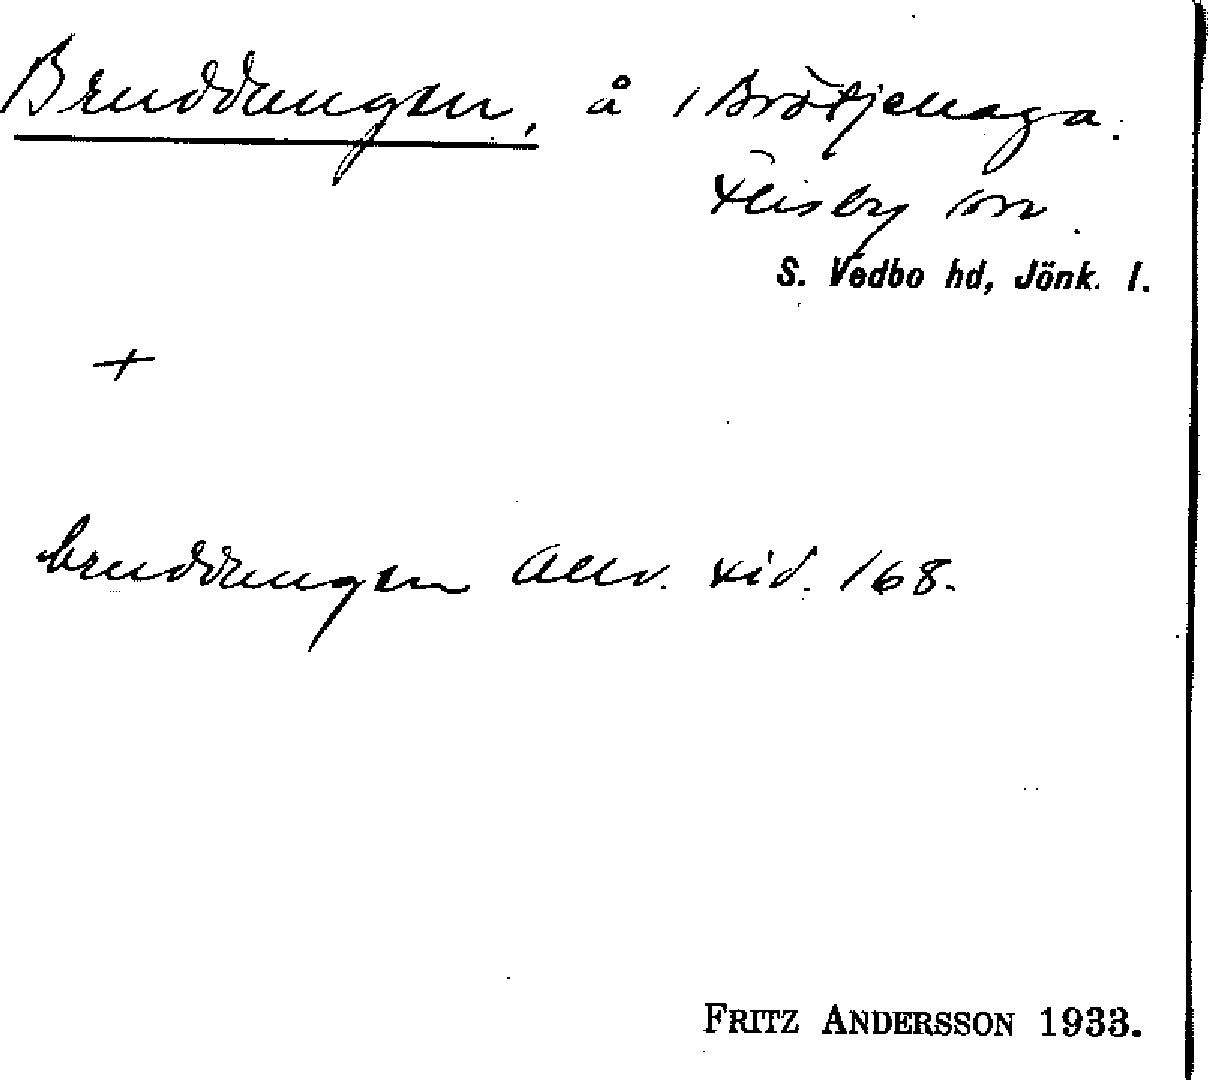 Bruddungen, å i Brötjemaga.
Flisby sn.
S. Vedbo hd, Jönk. l.
+
bruddungen Allm. tid. 168.
FRITZ ANDERSSON 1933.